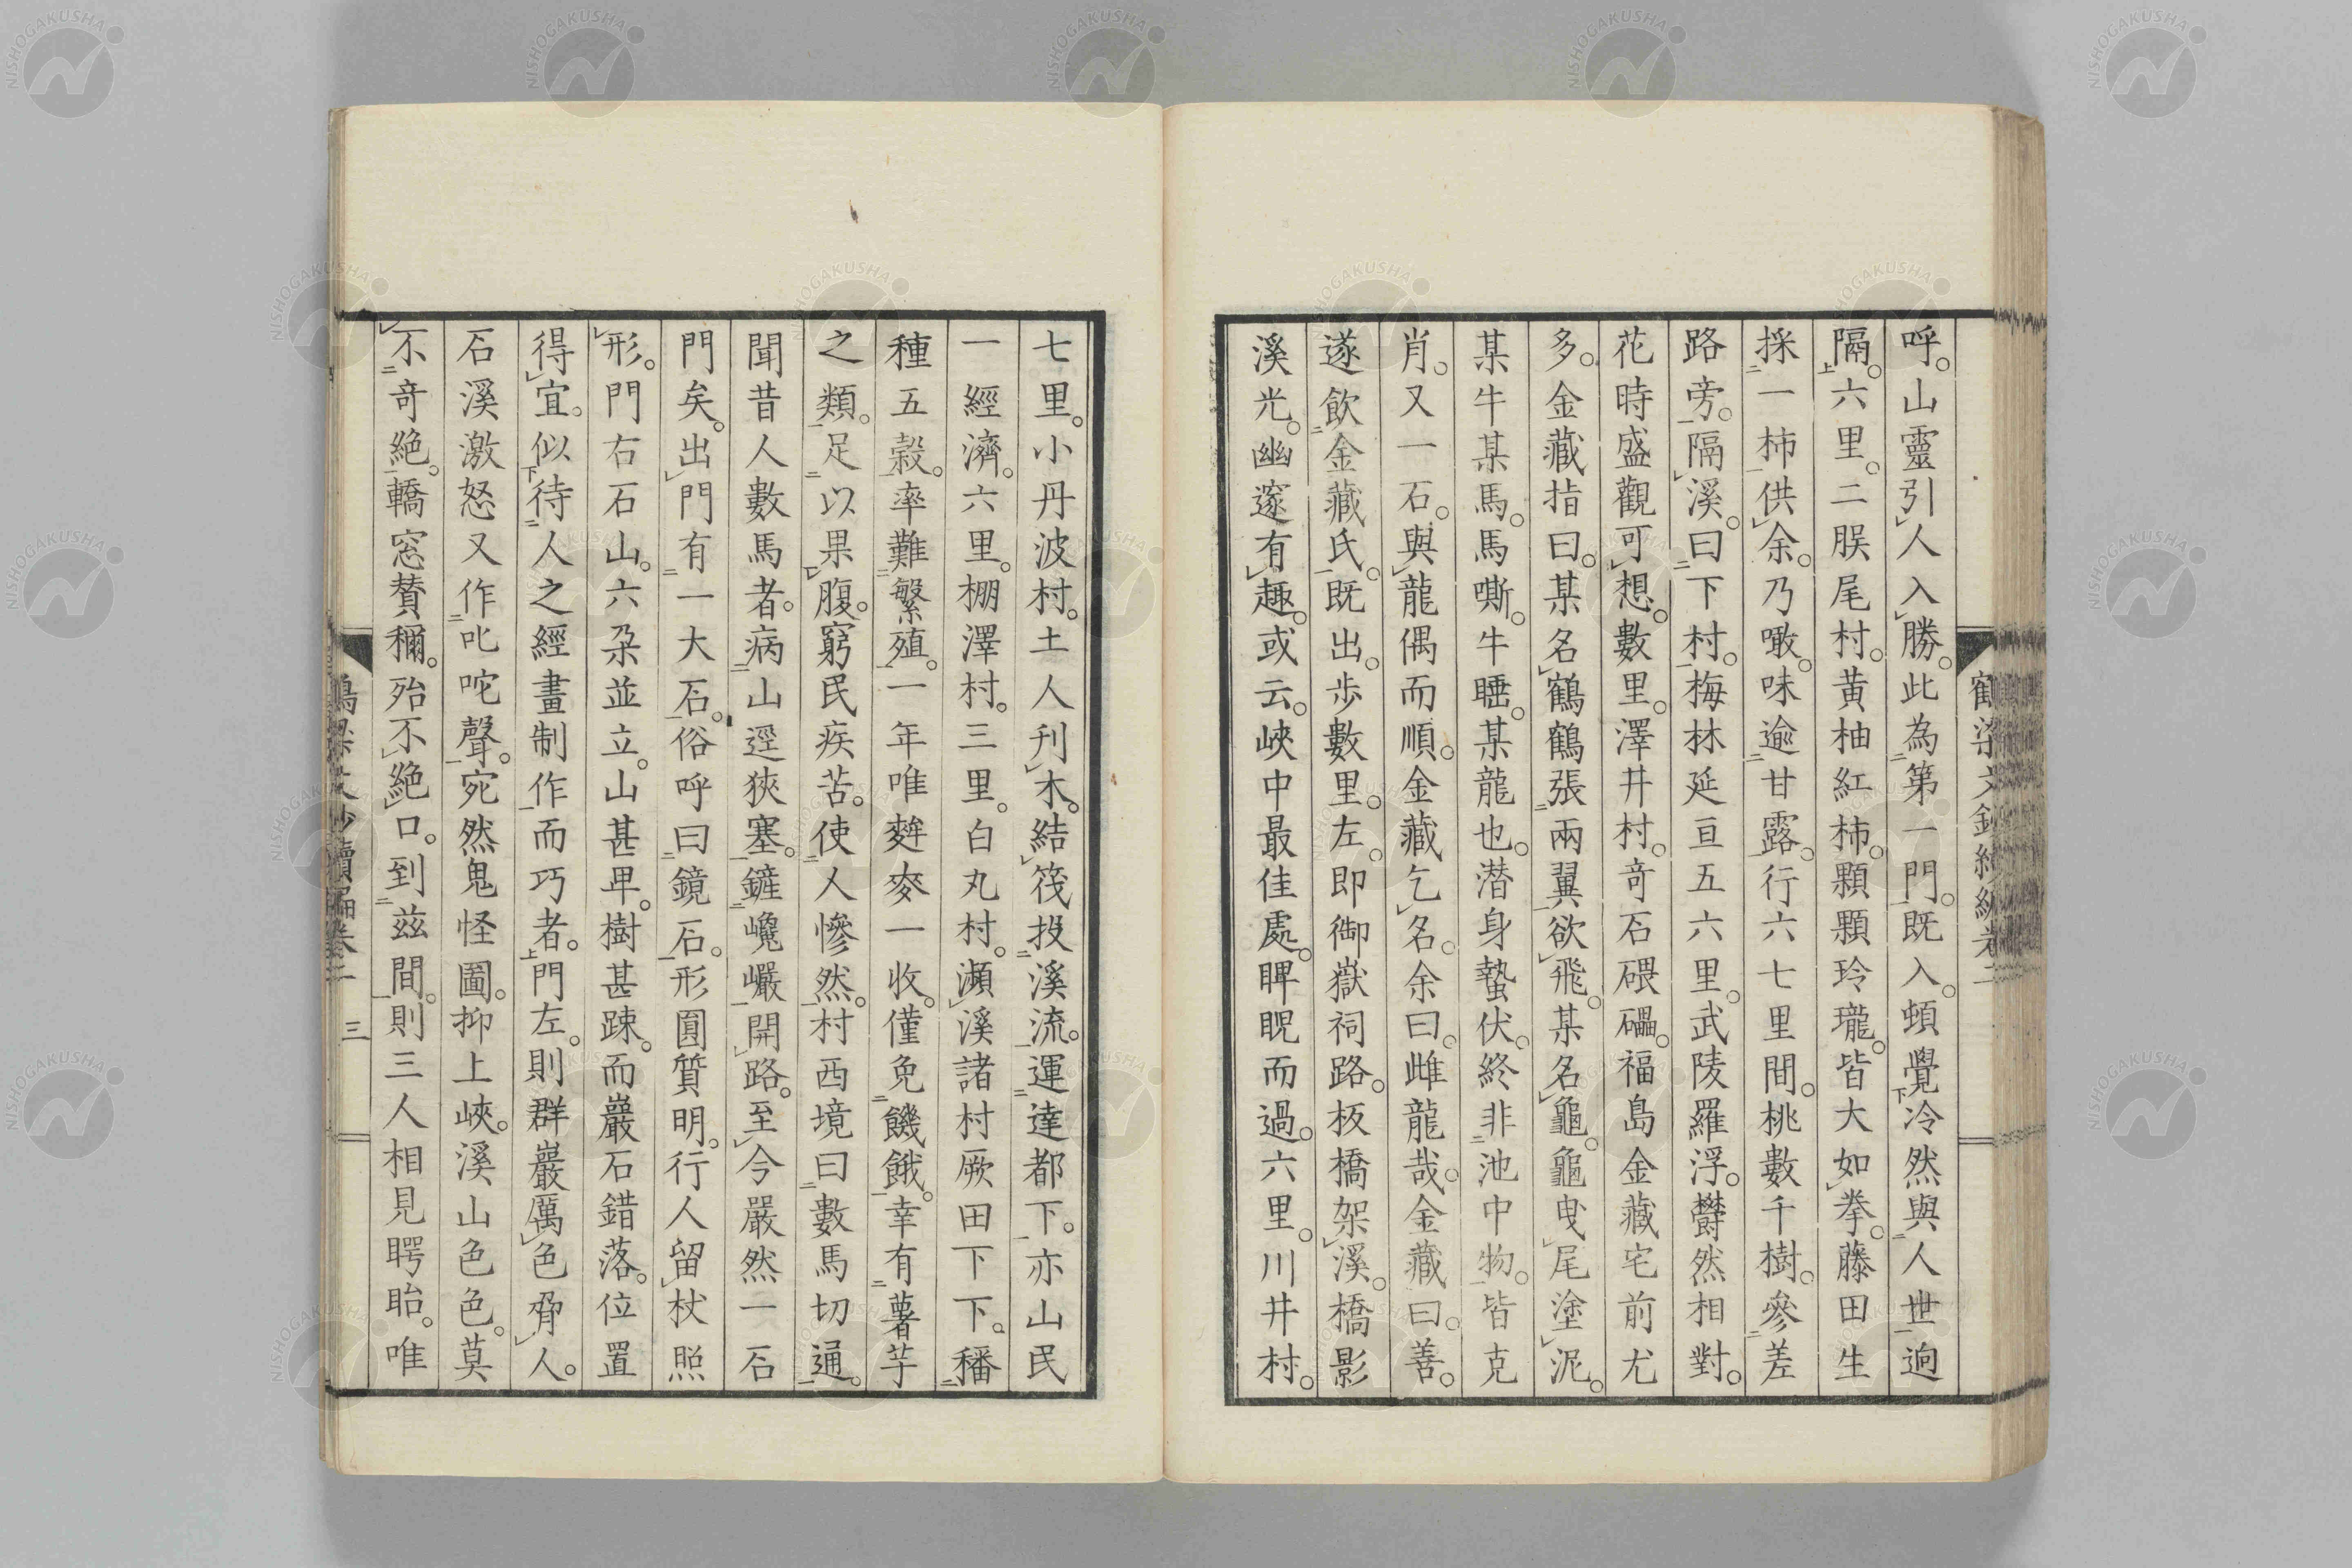 呼。山靈引人入勝。此為第一門。既入。頓覺冷然與人世逈
隔。六里。二朡尾村。黃柚紅柿。顆顆玲瓏。皆大如拳。藤田生
採一柿供余。乃噉。味逾甘露。行六七里間。桃數千樹。參差
路旁。隔溪。曰下村。梅林延亘五六里。武陵羅浮。欝然相對。
花時盛觀可想。數里。澤井村。奇石磈礧。福島金藏宅前尤
多。金藏指曰。某名鶴。鶴張兩翼欲飛。某名龜。龜曳尾塗泥。
某牛某馬。馬嘶。牛睡。某龍也。潜身蟄伏。終非池中物。皆克
肖。又一石。與龍偶而順。金藏乞名。余曰。雌龍哉。金藏曰。善。
遂飲金藏氏。既出。歩數里。左。即御嶽祠路。板橋架溪。橋影
溪光。幽邃有趣。或云。峽中最佳處。睥睨而過。六里。川井村。
七里。小丹波村。土人刋木。結筏投溪流。運達都下。亦山民
一經濟。六里。棚澤村。三里。白丸村。瀕溪諸村厥田下下。播
種五穀。率難繁殖。一年唯麰麥一收。僅免饑餓。幸有薯芋
之類。足以果腹。窮民疾苦。使人慘然。村西境曰數馬切通。
聞昔人數馬者。病山逕狹塞。鏟巉巗開路。至今嚴然一石
門矣。出門有一大石。俗呼曰鏡石。形圓質明。行人留杖照
形。門右石山。六朶並立。山甚卑。樹甚踈。而巖石錯落。位置
得宜。似待人之經畫制作而巧者。門左。則群巖厲色脅人。
石溪激怒又作叱咤聲。宛然鬼怪圖。抑上峽。溪山色色。莫
不奇絕。轎窓賛穪。殆不絕口。到茲間。則三人相見瞪眙。唯
三